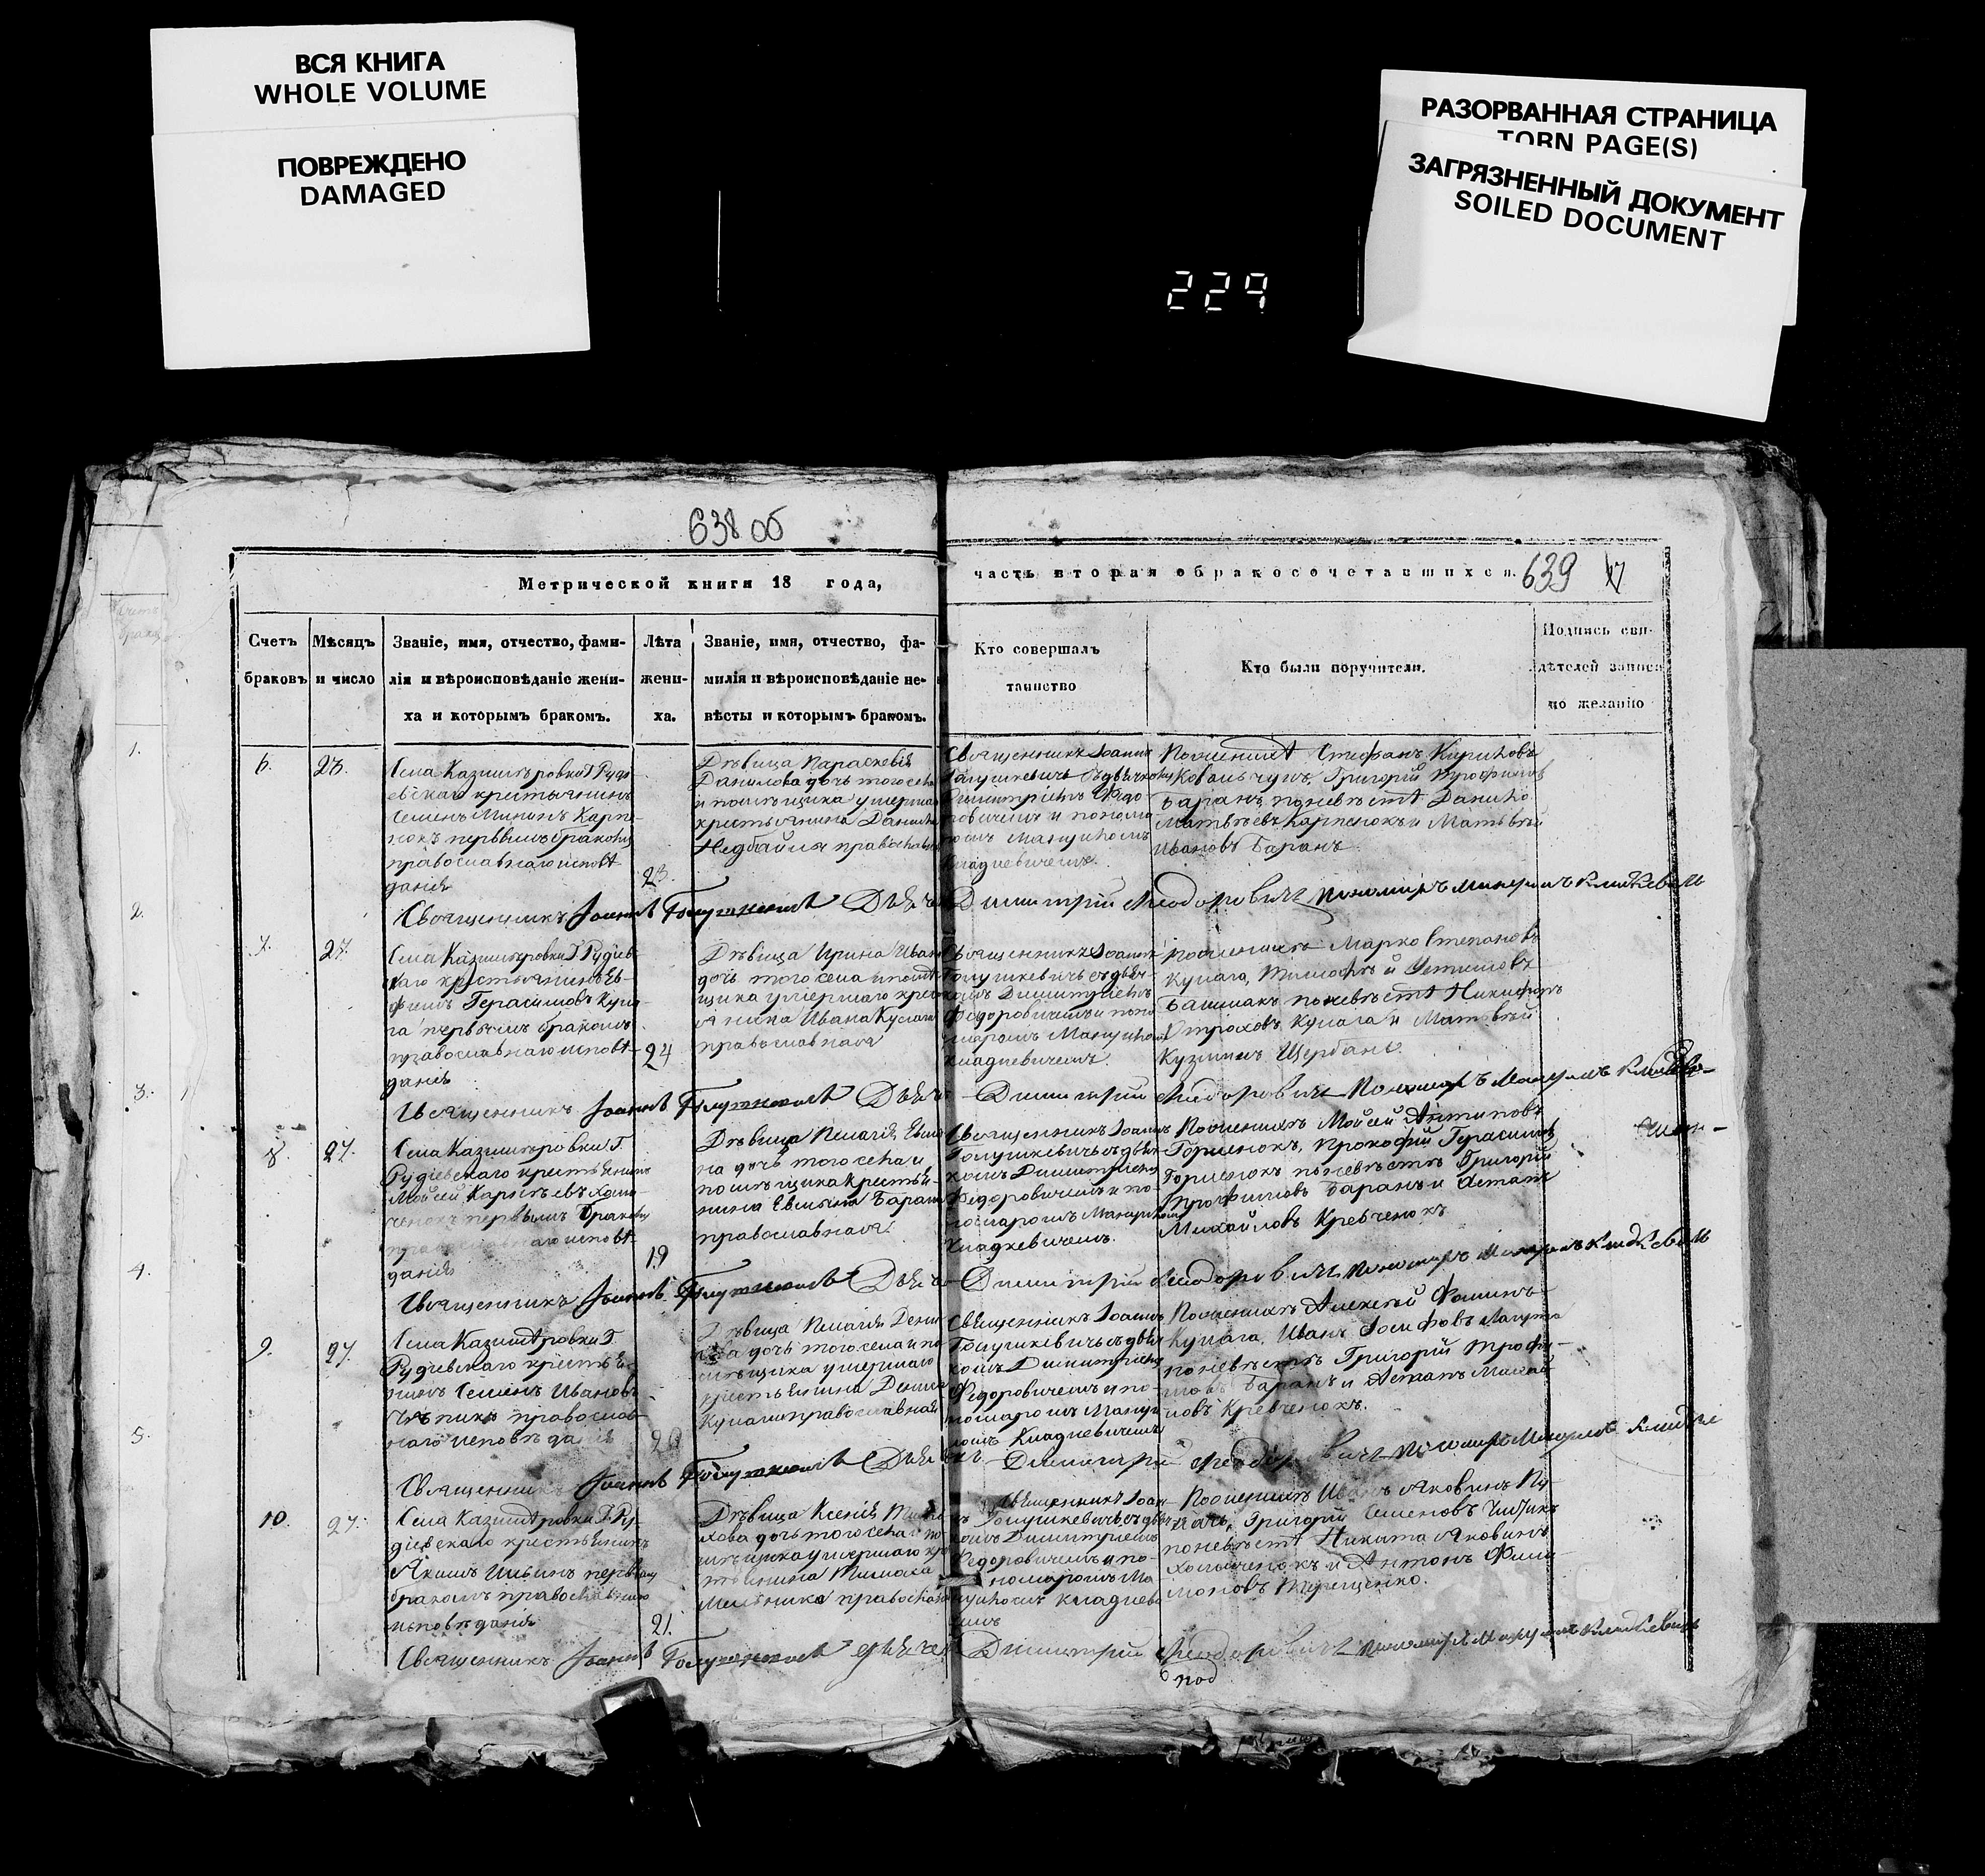 ВСЯ КНИГА
WHOLE VOLUME
ПОВРЕЖДЕНО
DAMAGED
РАЗОРВАННАЯ СТРАНИЦА
TORN PAGE(S)
ЗАГРЯЗНЕННЫЙ ДОКУМЕНТ
SOILED DOCUMENT
229
638 об
639
Метрической книги 18 года,
часть вторая о бракосочетавшихся.
Счетъ браковъ
Мѣсяцъ и число
Званіе, имя, отчество, фами-
лія и вѣроисповѣданіе жени-
ха и которымъ бракомъ.
Лѣта
жени-
ха.
Званіе, имя, отчество, фа-
милія и вѣроисповѣданіе не-
вѣсты и которымъ бракомъ.
Кто совершалъ
таинство
Кто были поручители.
Подпись сви-
дѣтелей записи
по желанію
6.
23.
Села Казимѣровки Г. Руді-
евскаго крестьянинъ
Семенъ Мининъ Карпе-
нокъ первымъ бракомъ
православнаго исповѣ-
данія
23.
Дѣвица Параскевія
Данилова дочь того села
и помѣщика умершаго
крестьянина Данила
Недбайла православная
Священникъ Іоаннъ
Голушкевичь съ дьячкомъ
Димитріемъ Федо-
ровичемъ и понома-
ремъ Мануиломъ
Кладкевичемъ.
По женихѣ Стефанъ Кириловъ
Ковальчукъ, Григорій Трофимовъ
Баранъ, по невѣстѣ Данило
Матвѣевъ Карпенокъ и Матвѣй
Ивановъ Баранъ
Священникъ Іоаннъ Голушкевичъ Дьячекъ Димитрій Феодоровичъ Пономарь Мануилъ Кладкевичъ
7.
27.
Села Казимѣровки Г. Рудіев-
скаго крестьянинъ Ев-
фимъ Герасимовъ Кула-
га первымъ бракомъ
православнаго исповѣ-
данія
24
Дѣвица Ирина Иванова
дочь того села и помѣ-
щика умершаго кресть-
янина Ивана Кулаги
православная
Священникъ Іоаннъ
Голушкевичь съ дьяч-
комъ Димитріемъ
Федоровичемъ и поно-
маремъ Мануиломъ
Кладкевичемъ
По женихѣ Марко Степановъ
Кулага, Тимофѣй Устимовъ
Башмакъ по невѣстѣ Никифоръ
Кулага и Матвѣй
Кузминъ Щербань.
Священникъ Іоаннъ Голушкевичъ Дьячекъ Димитрій Феодоровичъ Пономарь Мануилъ Кладкевичъ
8.
27.
Села Казимѣровки Г.
Рудіевскаго крестьянинъ
Мойсей
первымъ бракомъ
православнаго исповѣ-
данія
19
Дѣвица Пелагія
дочь того села и
помѣщика крестья-
нина Баранa
православная
Священникъ Іоаннъ
Голушкевичь съ дьяч-
комъ Димитріемъ
Федоровичемъ и по-
номаремъ Мануиломъ
Кладкевичемъ.
По женихѣ Мойсей Антиповъ
Прокофій Герасимовъ
по невѣстѣ Григорій
Трофимовъ Баранъ и Астапъ
Михайловъ Кревченокъ
Священникъ Іоаннъ Голушкевичъ Дьячекъ Димитрій Феодоровичъ Пономарь Мануилъ Кладкевичъ
9.
27.
Села Казимѣровки Г.
Рудіевскаго крестья-
нинъ Семенъ Ивановъ
православ-
наго исповѣданія
20
Дѣвица Пелагія Дени-
сова дочь того села и по-
мѣщика умершаго
крестьянина Дениса
Кулаги православная
Священникъ Іоаннъ
Голушкевичь съ дьяч-
комъ Димитріемъ
Федоровичемъ и по-
номаремъ Мануи-
ломъ Кладкевичемъ
По женихѣ Алексѣй Фоминъ
Кулага, Иванъ Іосифовъ
по невѣстѣ Григорій Трофи-
мовъ Баранъ и Астапъ Михай-
ловъ Кревченокъ.
Священникъ Іоаннъ Голушкевичъ Дьячекъ Димитрій Феодоровичъ Пономарь Мануилъ
10.
27.
Села Казимѣровки Г. Ру-
діевскаго крестьянинъ
Якимъ Ильинъ первымъ
бракомъ православнаго
исповѣданія
21.
Дѣвица Ксенія
дочь того села и по-
мѣщика умершаго кре-
стьянина
Мельника православная
Священникъ Іоан-
нъ Голушкевичь съ дьяч-
комъ Димитріемъ
Федоровичемъ и по-
номаремъ Ма-
нуиломъ Кладкеви-
чемъ
По женихѣ Иванъ Яковинъ
Григорій Семеновъ
по невѣстѣ Никита Яковинъ
и Антонъ Фили-
моновъ Терещенко.
Священникъ Іоаннъ Голушкевичъ Дьячекъ Димитрій Феодоровичъ Пономарь Мануилъ Кладкевичъ
под
1.
2.
3.
4.
5.